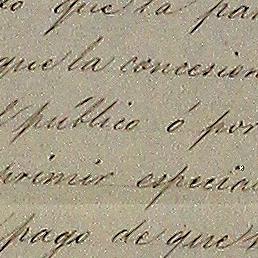 que la par
que la concesion
público ó por
primir especia
pago de que